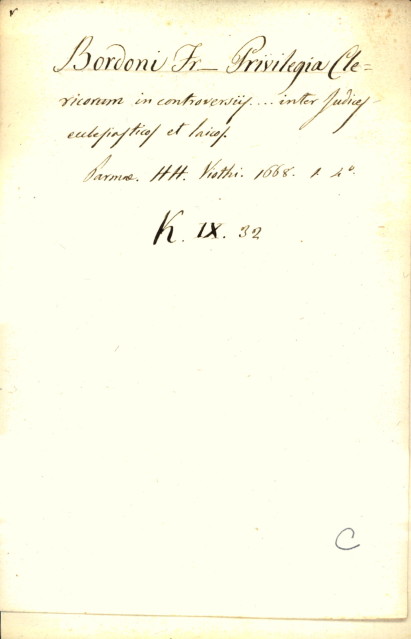 Bordoni Fr_ Privilegia Cle=
ricorum in controversiis .... inter Judices
ecclesiasticos et laicos.
Parmæ. HH. Viothi. 1668. 1. 4°.
K. IX. 32
C